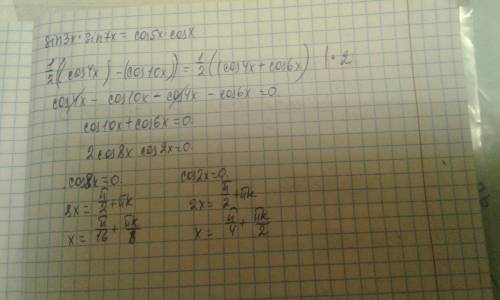 sin3x·sin7x = cos5x·cosx
1/2((cos4x) -(cos10x)) = 1/2((cos4x+cos6x) |·2
cos4x - cos10x - cos4x - cos6x = 0.
cos10x + cos6x = 0.
2cos8x cos2x = 0.
cos8x = 0. cos2x = 0.
8x = π/2 + πk 2x = π/2 + πk
x = π/16 + πk/8 x = π/4 + πk/2